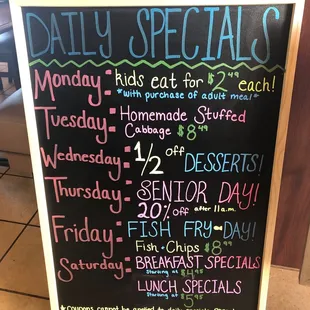 DAILY SPECIALS
Monday: kids eat for $2.49 each!
*with purchase of adult meal*
Tuesday: Homemade Stuffed
Cabbage $8.49
Wednesday: 1/2 off DESSERTS!
Thursday: SENIOR DAY!
20% off after 11a.m.
Friday: FISH FRY-DAY!
Fish + Chips $8.99
Saturday: BREAKFAST SPECIALS
Starting at $4.95
LUNCH SPECIALS
Starting at $5.95
*coupons cannot be applied to daily specials